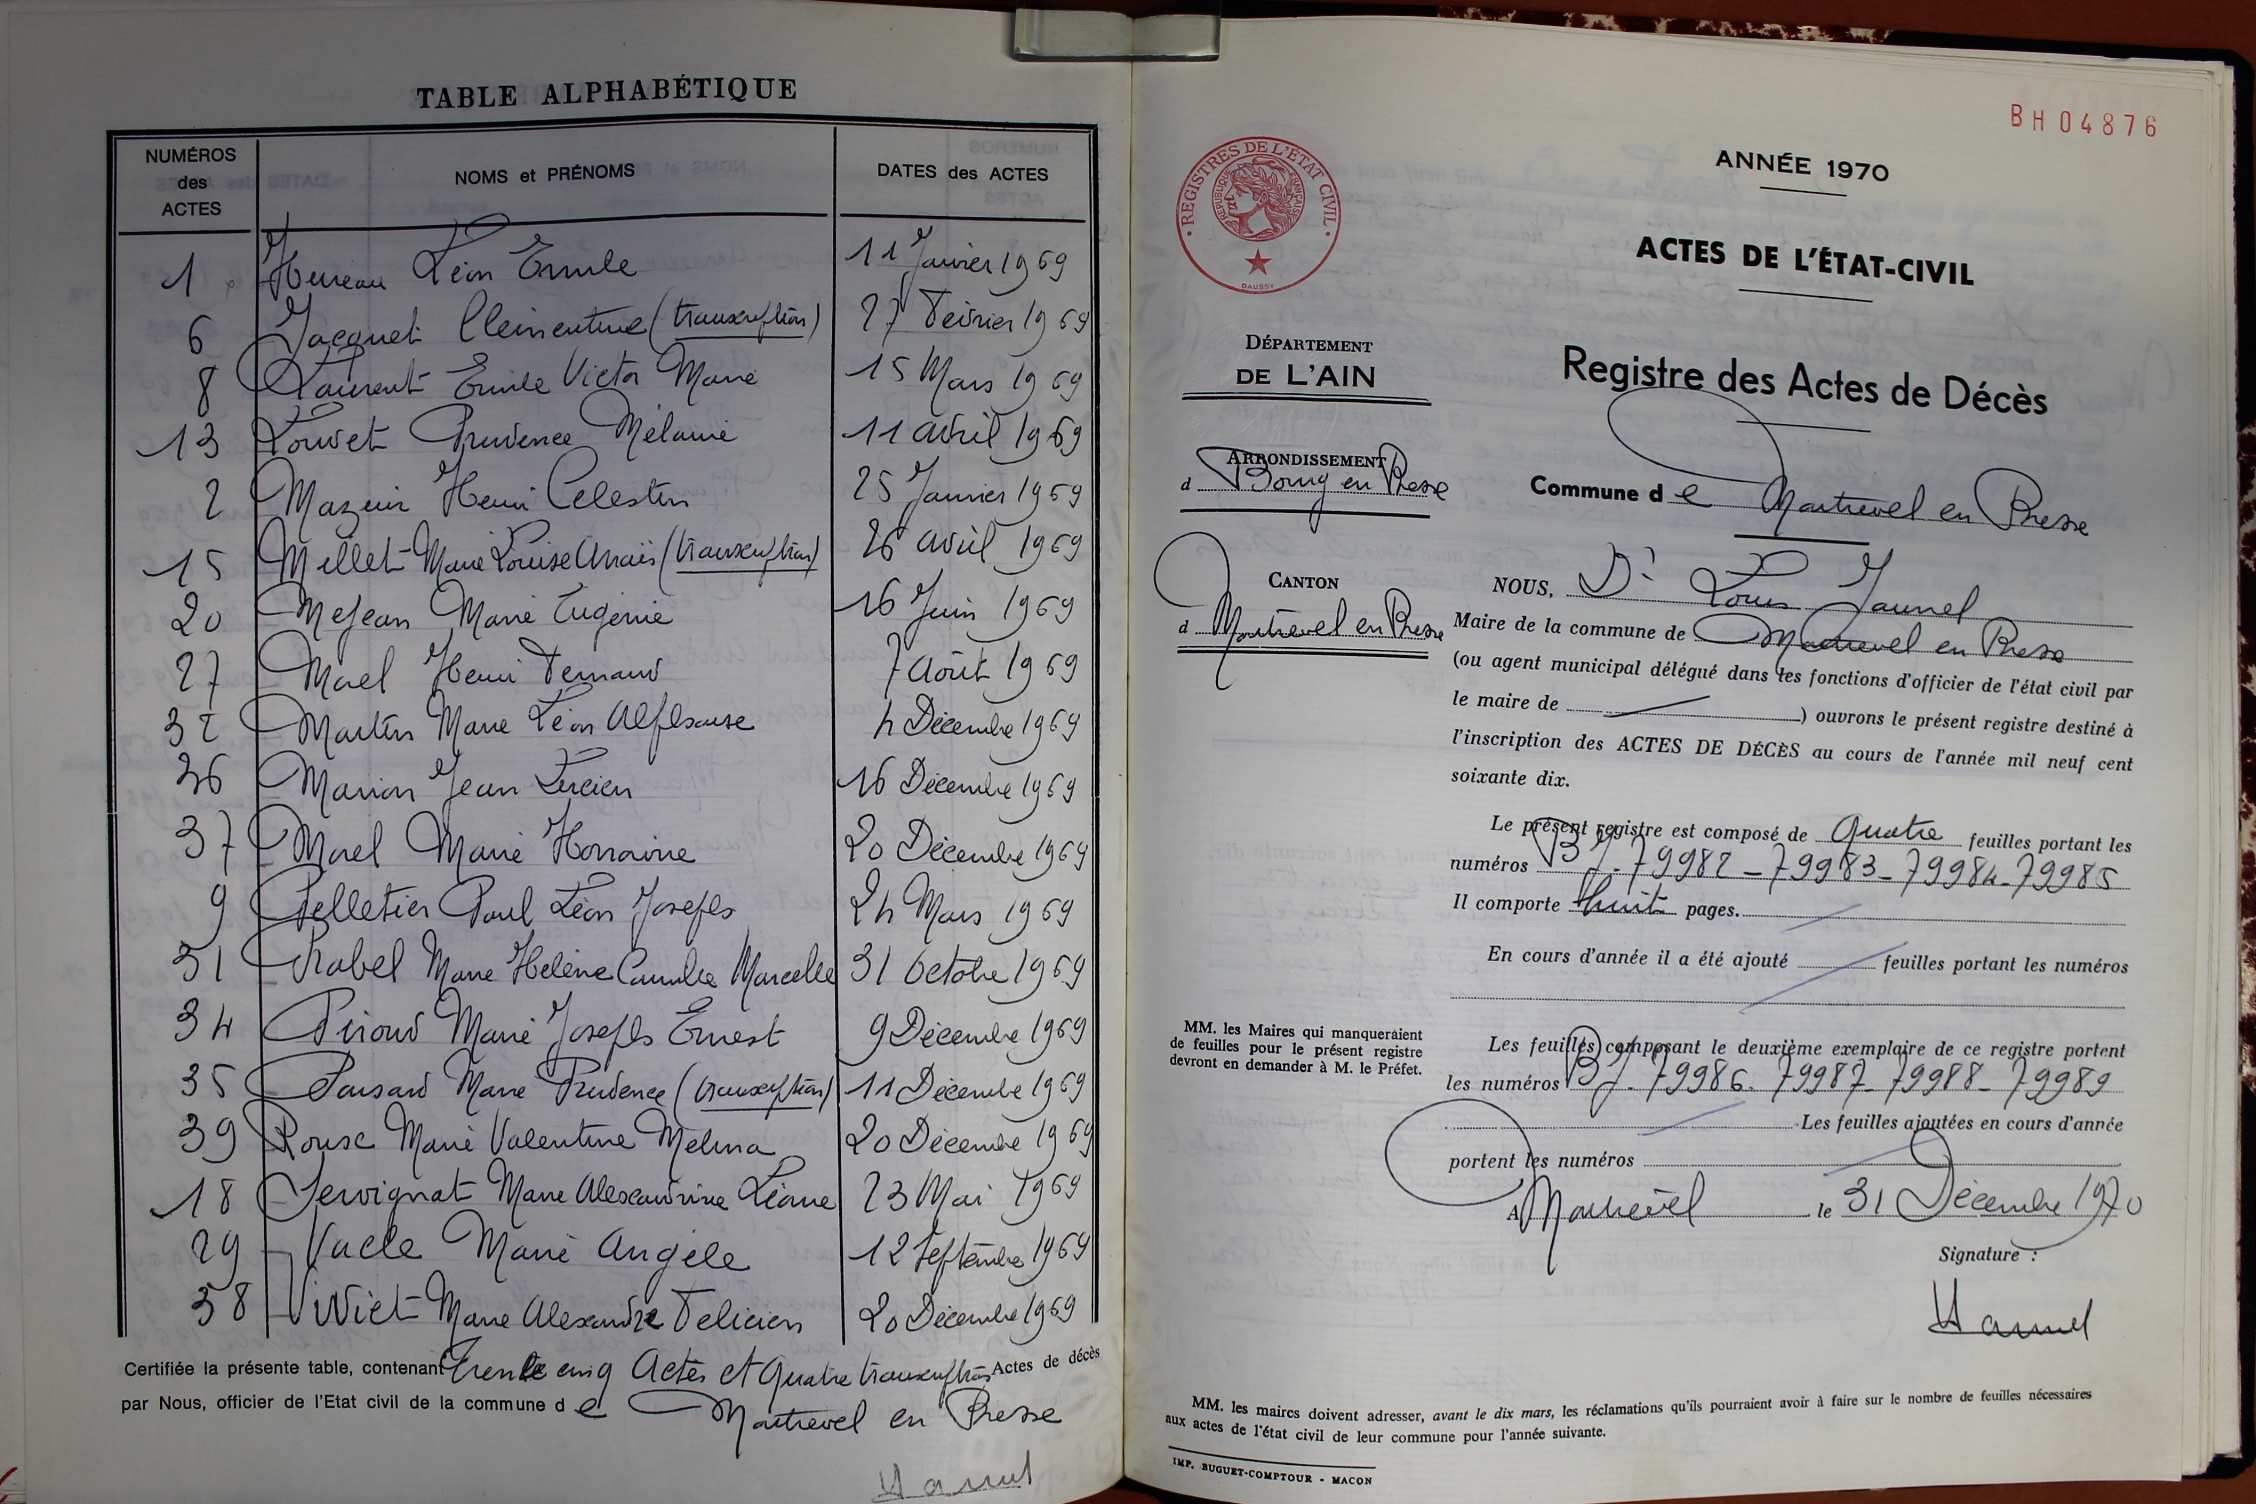 TABLE ALPHABÉTIQUE
NUMÉROS des ACTES
NOMS et PRÉNOMS
DATES des ACTES
1 Léon Emile 11 Janvier 1969
6 Jacquet Clementine (transcription) 27 Février 1969
8 Laurent Emile Victor Marie 15 Mars 1969
13 Louvet Prudence Mélanie 11 avril 1969
2 Mazuir Henri Célestin 25 Janvier 1969
15 Millet Marie Louise Anaïs (transcription) 26 avril 1969
20 Mejean Marie Eugénie 16 Juin 1969
27 Morel Henri Fernand 7 Août 1969
32 Martin Marie Léon Alphonse 4 Décembre 1969
36 Marion Jean Lucien 16 Décembre 1969
37 Morel Marie Honorine 20 Décembre 1969
9 Pelletier Paul Léon Joseph 24 Mars 1969
31 Rabel Marie Hélène Camille Marcelle 31 Octobre 1969
34 Piroud Marie Joseph Ernest 9 Décembre 1969
35 Marie Prudence (transcription) 11 Décembre 1969
39 Marie Valentine Melina 20 Décembre 1969
18 Servignat Marie Alexandrine Léone 23 Mai 1969
29 Vacle Marie Angèle 12 Septembre 1969
38 Viviet Marie Alexandre Félicien 20 Décembre 1969
Certifiée la présente table, contenant Trente cinq Actes et Quatre transcriptions Actes de décès
par Nous, officier de l'Etat civil de la commune de Montrevel en Bresse
BH04876
REGISTRES DE L'ÉTAT CIVIL
RÉPUBLIQUE FRANÇAISE
DAUSSY
ANNÉE 1970
ACTES DE L'ÉTAT-CIVIL
DÉPARTEMENT
DE L'AIN
Registre des Actes de Décès
ARRONDISSEMENT
d Bourg en Bresse
Commune de Montrevel en Bresse
CANTON
d Montrevel en Bresse
NOUS, Dr Louis Jaunel
Maire de la commune de Montrevel en Bresse
(ou agent municipal délégué dans les fonctions d'officier de l'état civil par
le maire de ) ouvrons le présent registre destiné à
l'inscription des ACTES DE DÉCÈS au cours de l'année mil neuf cent
soixante dix.
Le présent registre est composé de quatre feuilles portant les
numéros BJ. 79982 - 79983 - 79984 - 79985
Il comporte huit pages.
En cours d'année il a été ajouté feuilles portant les numéros
MM. les Maires qui manqueraient
de feuilles pour le présent registre
devront en demander à M. le Préfet.
Les feuilles composant le deuxième exemplaire de ce registre portent
les numéros BJ. 79986. 79987 - 79988 - 79989
Les feuilles ajoutées en cours d'année
portent les numéros
A Montrevel le 31 Décembre 1970
Signature :
MM. les maires doivent adresser, avant le dix mars, les réclamations qu'ils pourraient avoir à faire sur le nombre de feuilles nécessaires
aux actes de l'état civil de leur commune pour l'année suivante.
IMP. BUGUET-COMPTOUR - MACON